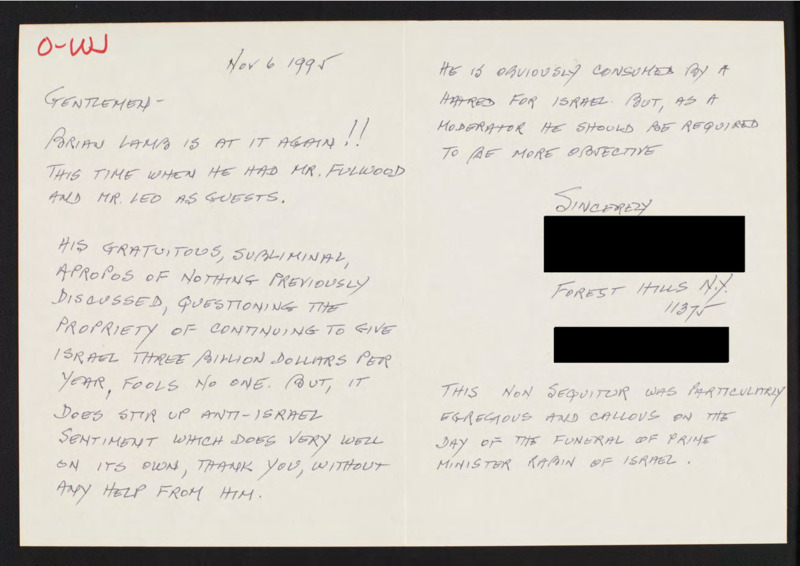 O-W
Nov 6 1995
GENTLEMEN-
BRIAN LAMB IS AT IT AGAIN!!
THIS TIME WHEN HE HAD MR. FULWOOD
AND MR. LEO AS GUESTS.
HIS GRATUITOUS, SUBLIMINAL,
APROPOS OF NOTHING PREVIOUSLY
DISCUSSED, QUESTIONING THE
PROPRIETY OF CONTINUING TO GIVE
ISRAEL THREE BILLION DOLLARS PER
YEAR, FOOLS NO ONE. BUT, IT
DOES STIR UP ANTI-ISRAEL
SENTIMENT WHICH DOES VERY WELL
ON ITS OWN, THANK YOU, WITHOUT
ANY HELP FROM HIM.
HE IS OBVIOUSLY CONSUMED BY A
HATRED FOR ISRAEL. BUT, AS A
MODERATOR HE SHOULD BE REQUIRED
TO BE MORE OBJECTIVE
SINCERELY
FOREST HILLS N.Y.
11375
THIS NON SEQUITUR WAS PARTICULARLY
EGREGIOUS AND CALLOUS ON THE
DAY OF THE FUNERAL OF PRIME
MINISTER RABIN OF ISRAEL.